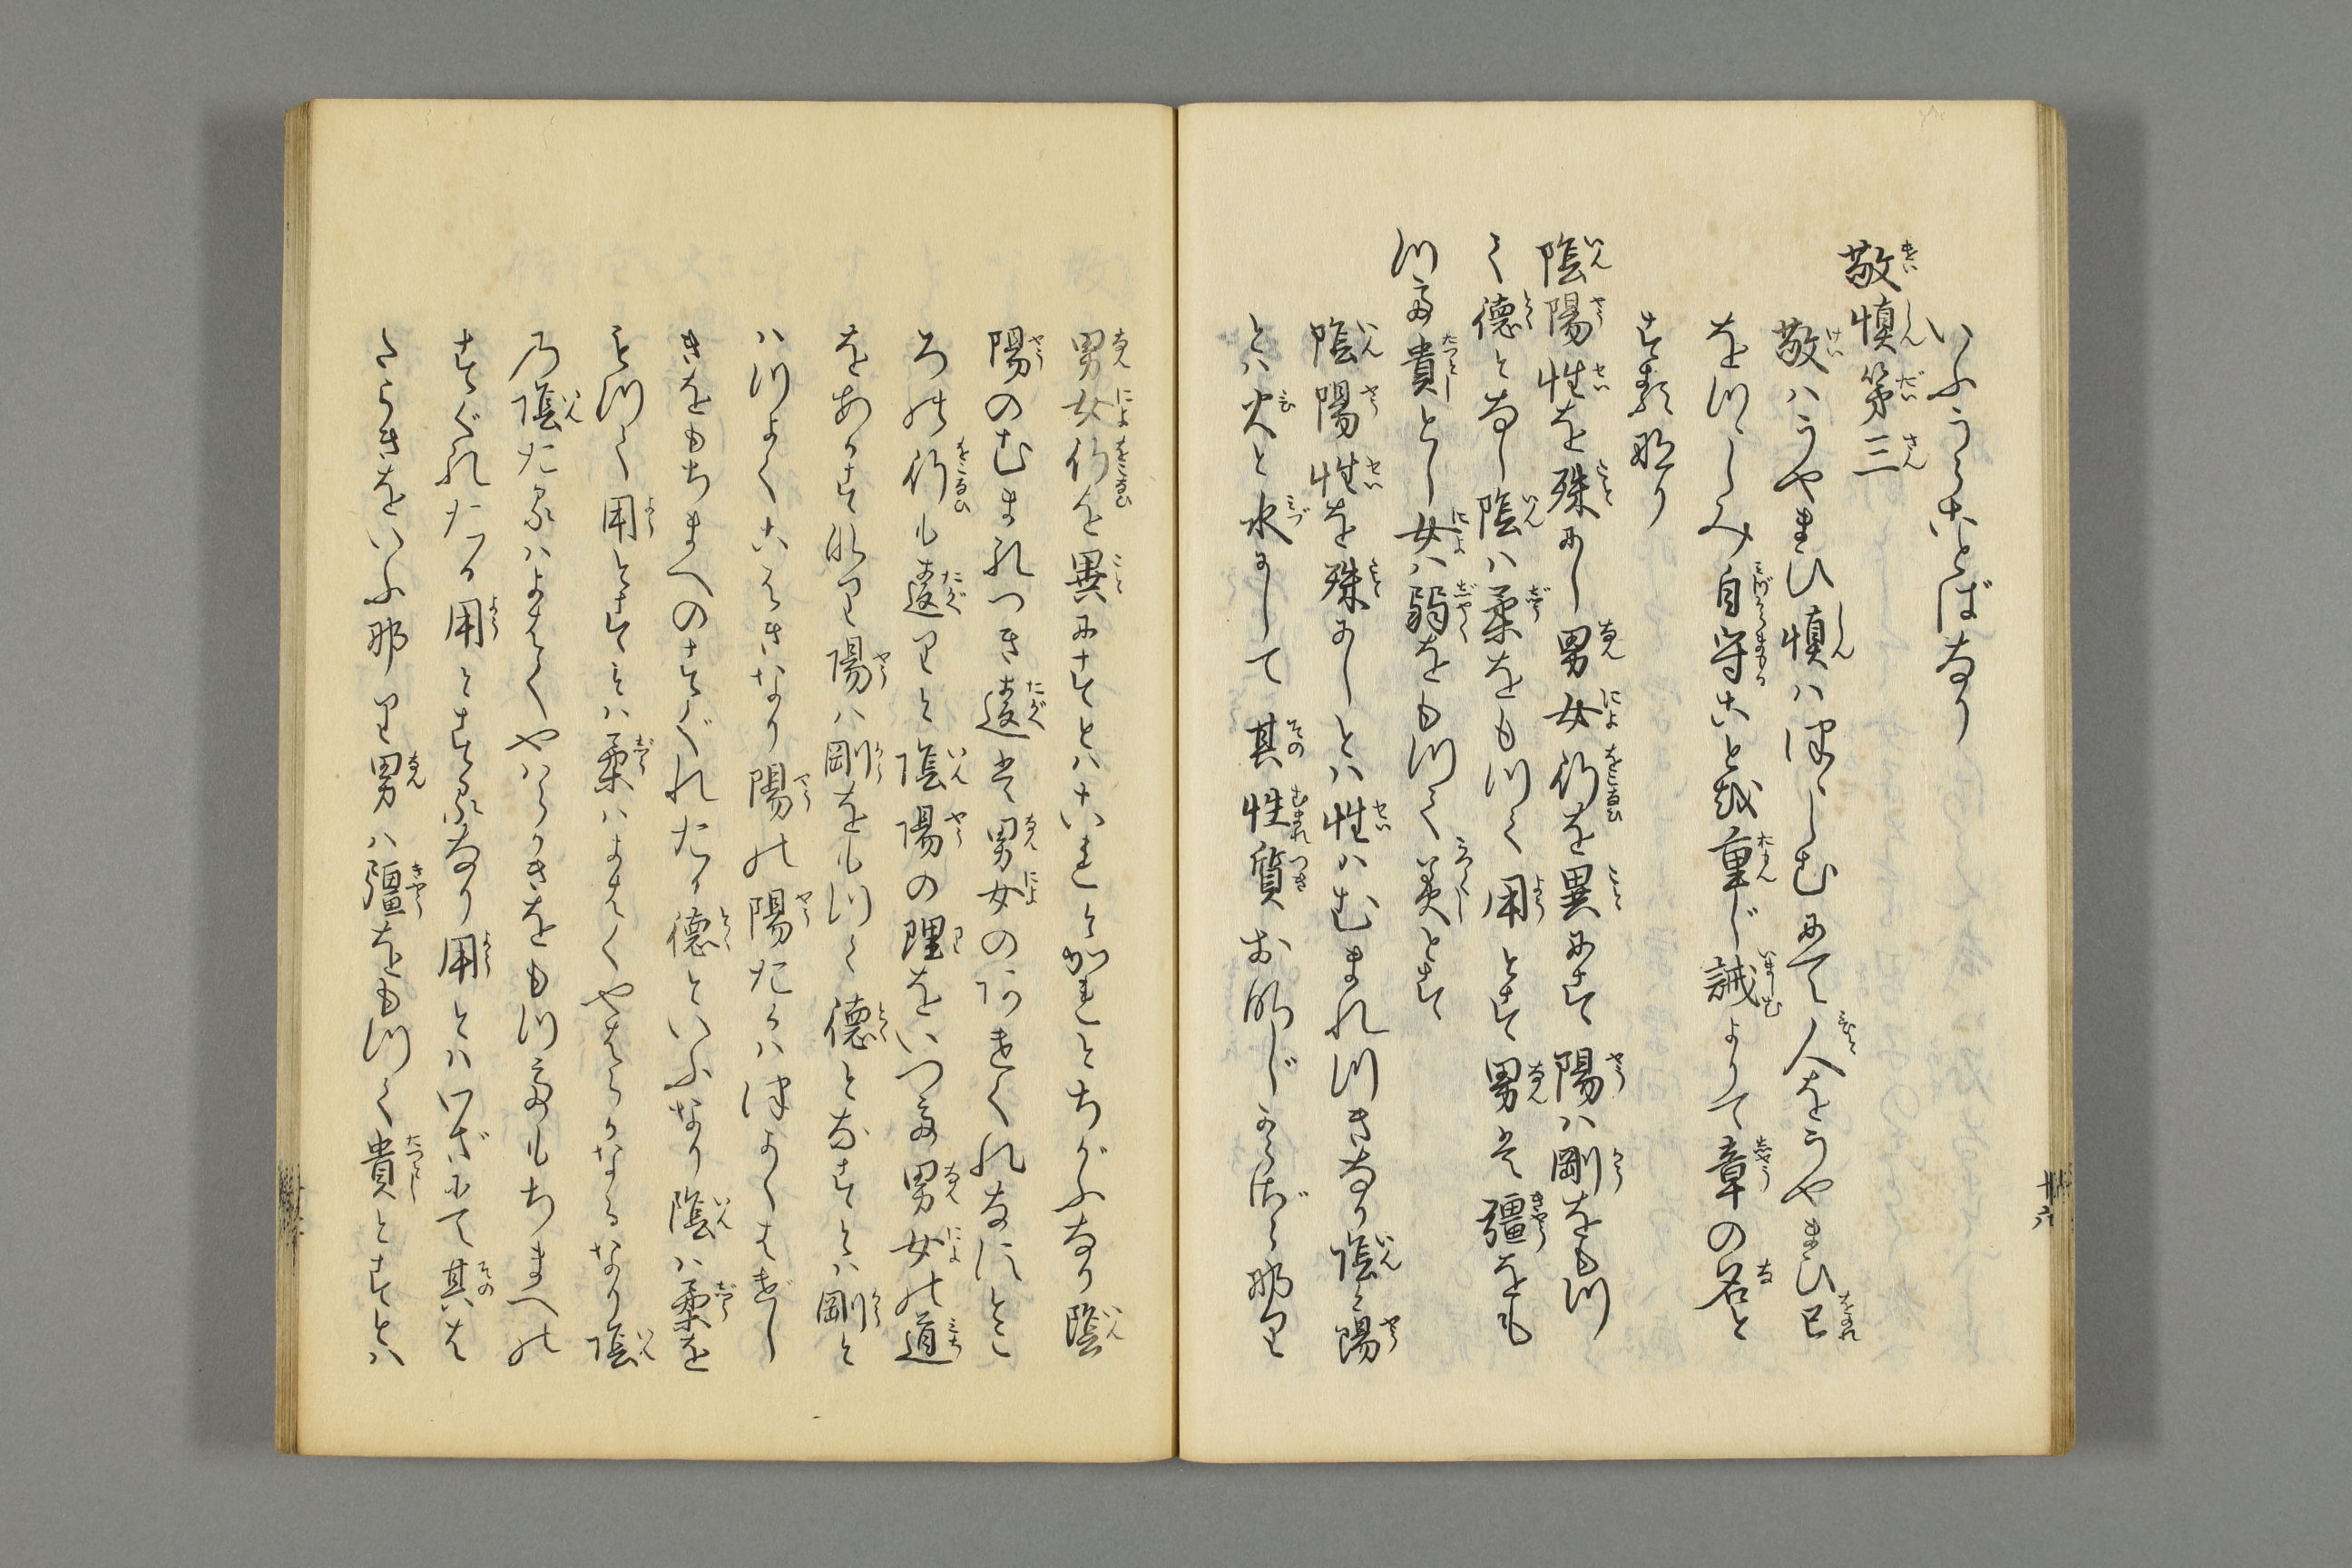 いふうへことばなり
敬慎第三
敬ハうやまひ慎ハつゝしむにて人をうやまひ己
をつゝしみ自守こと越重じ誡よりて章の名と
する那り
陰陽性を殊にし男女行を異にす陽ハ剛をもつ
て徳となし陰ハ柔をもつて用とす男は彊をも
つて貴とし女ハ弱をもつて美とす
陰陽性を殊にしとハ性ハむまれつきなり陰と陽
とハ火と水にして其性質おなじからざる那り
男女行を異にすとハこれとかれとちがふなり陰
陽のむまれつき違は男女の
ろの行も違りと陰陽の理をいつて男女の道
をあかすなり陽ハ剛をもつて徳となすとハ剛と
ハつよくこはきなり陽の陽たるハつよくはげし
きをもちまへのすぐれたる徳といふなり陰ハ柔を
もつて用とすとハ柔ハよはくやはらかなるなり陰
乃陰たるハよはくやハらかきをもつてもちまへの
すぐれたる用とするなり用とハわざにて其は
たらきをいふ那り男ハ彊をもつて貴とすとハ
廿六